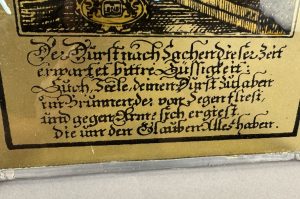 Der Dürst nach Sachen dieser Zeit
erwartet bittre Süssigkeit:
Such, Seele, deinen Dürst zü laben
im Brünnen der von Segen fliest,
und gegen Arme sich ergiest,
die üm den Glauben Alles haben.